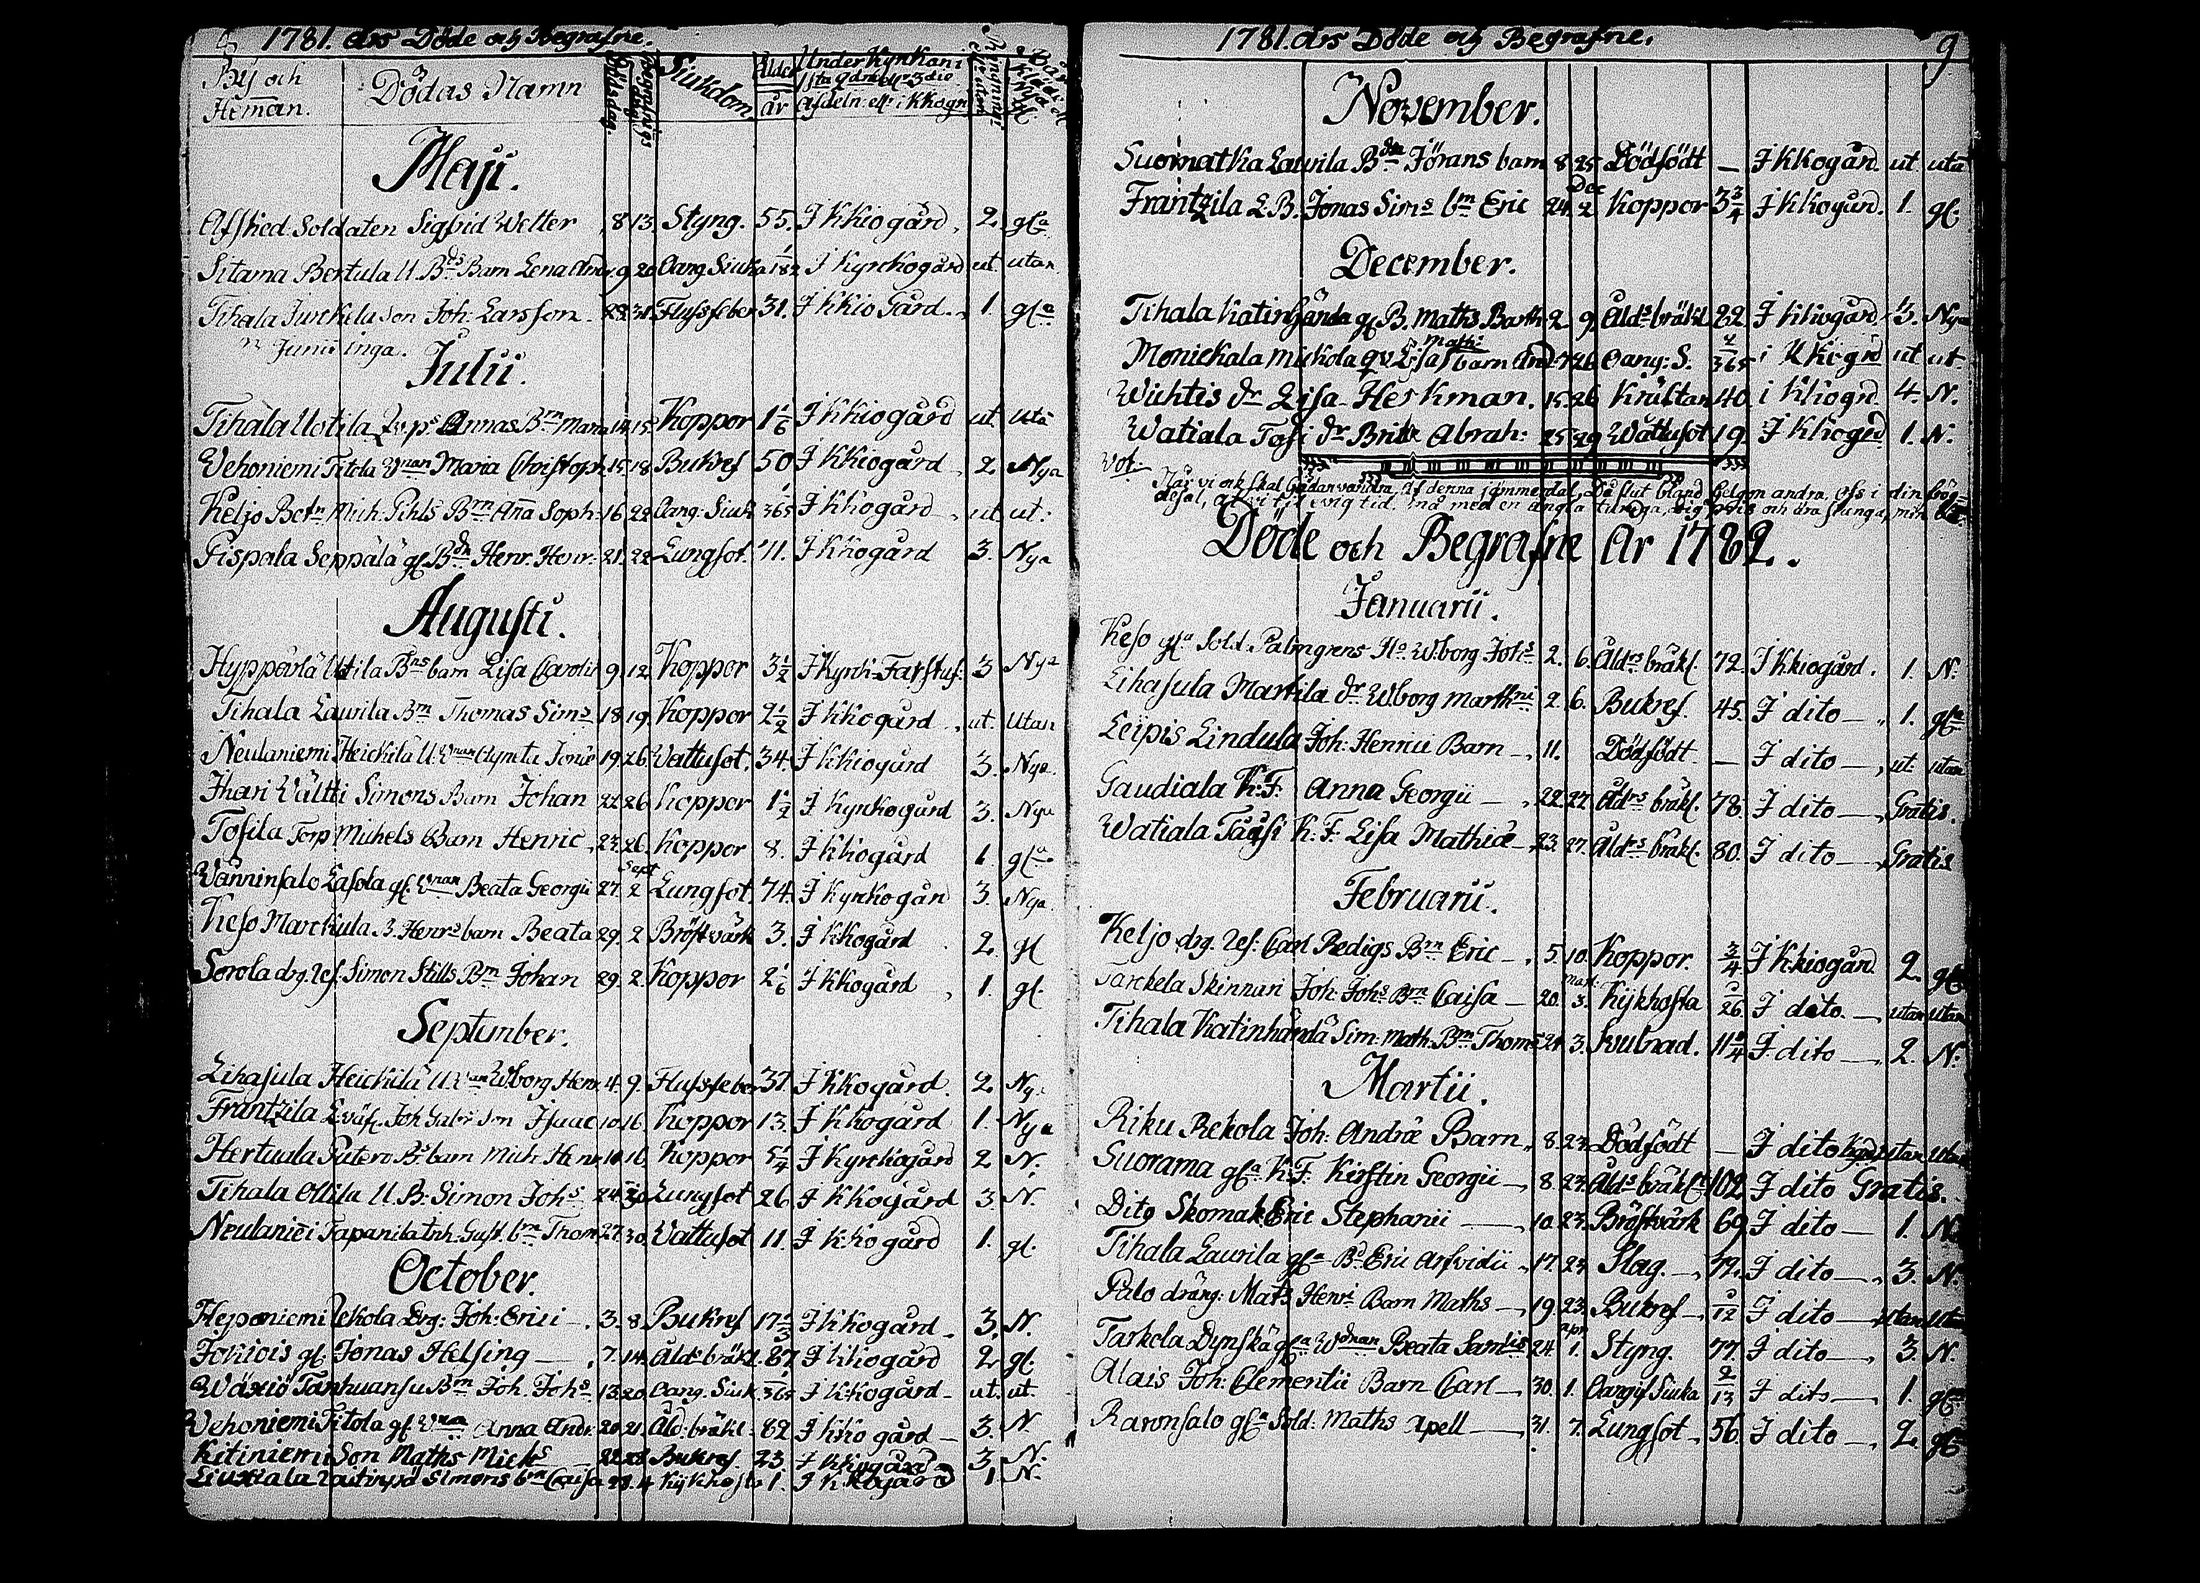 1781. års Döde och Begrafne.
By och Heman.
Dödas Namn
Dödsdag.
Begrafnings
Siukdom.
Ålder
år
Under Kyrkan i
afdeln: elr i Kkogn
Maji.
Afsked Soldaten Sigfrid Welter 8 13. Styng. 55. J KKiogård, 2. gla
Sitama Bertula U. Bds Barn Lena 9. 20 Oang Siuka J Kyrckogård ut. utan
Tihala Junkila Son Joh: Larsson 31 Flussfeber 31. J KKio Gård 1. gla
Junii inga.
Julii.
Tihala Uotila Annas Bm Maria 14 15. Koppor 1 1/6 J KKiogård ut uta
Wehoniemi Titola Wnan Maria Christoph: 15 18. Bukref 50 J KKiogård 2 Nya
Keljo Mich: Pihls Bm Aña Soph: 16 22 Oang: Siuk 1/365 J KKogård ut ut:
Pispala Seppälä gl. Bdn Henr. Henr: 21. 22 Lungsot. 71. J KKogård 3. Nya
Augusti.
Hyppärlä Utila Bns barn Lisa 9. 12. Koppor 3 1/2 J Kyrk-Farstuf: 3 Nya
Tihala Laurila Bm Thomas Sims 18 19. Koppor 2 1/2 J KKogård ut. Utan
Neulaniemi Heickilä U. Wnan Agneta 19. 26. Wattusot. 34. J KKiogård 3. Nya.
Jhari Wältti Simons Barn Johan 22. 26. Koppor 1 1/2 J Kyrkogård 3. Nya
Tofila Torp Michels Barn Henric 23. 26. Koppor 8. J KKogård 1 gla
Sept
Wänninsalo Lasola gl. Wnan Beata Georgii 27. 2 Lungsot. 74. J Kyrkogån 3. Nya.
Keso Marckula B. Henrs barn Beata 29. 2 Bröstwärk 3. J KKogård 2 gl
Sorola drg. Simon Stills Bm Johan 29. 2. Koppor 2 1/6 J KKogård 1. gl.
September.
Lihasula Heickilä U. Wnan Wborg Henr 4. 9. Flussfeber 37. J KKogård. 2. Ny.
Frantzila Joh Gabr Son Jsaac 10. 16. Koppor 13. J KKogård 1. Nya
Hertuala Putero Bs barn Mich. Henr 10. 16. Koppor 5 1/4 J Kyrckogård 2 N.
Tihala Ollila U. B: Simon Johs 24. 30. Lungsot 26 J KKogård 3. N.
Neulaniẽi Tapanila Gust. bm Thom 27. 30. Wattusot 11. J KKogård 1. gl.
October.
Heponiemi Uekola Drg: Joh: Erici 3. 8. Bukref 17 1/3 J KKogård 3. N.
Jokiois gl. Jonas Helsing 7. 14. Ålds bräkl. 87. J KKiogård 2 gl.
Wäxiö Tanhuansu Bm Joh. Johs 13. 20. Oang. Siuk 1/365 J KKogård ut. ut.
Wehoniemi Titola gl. Wna Anna Andr: 20. 21. Åld: bräkl: 82 J KKogård 3. N.
Kitiniemi Son Maths Micks 22. 28. Bukref 23 J KKiogård 3. N.
Simons bm Caisa 28. 4 Kijkhosta 1. J KKogård 1. N.
1781. års Döde och Begrafne. 9
November.
Suomatka Laurila Bdn Jörans barn 8 25. Dödfödt — J KKogån. ut uta
Dec
Frantzila L.B. Jonas Sims bm Eric 24. 2. Koppor 3 3/4 J KKogård. 1. gl.
December.
Tihala Katinhända gl. B. Maths Barth 2. 9. Ålds bräkl 82. J KKiogård 3. Nya
Monickala Mickola qv Lisa Math: barn And. 7 26. Oang: S. 4/365 i KKogrd ut ut.
Wichtis dr Lisa Herkman. 15. 26 Kräftan 40. i KKiogrd. 4. N.
Watiala Tosi dr Brita Abrah: 25. 29 Wattusot 19. J KKogrd 1. N.
Vot:
När vi ock skal gådanvandra af denna jämmerdal, Då slut bland helgon andra oss i din
Döde och Begrafne År 1782.
Januarii.
Keso gla Sold. Palmgrens Ha Wborg Johs 2. 6. Åldrs bräkl. 72. J KKiogård. 1. N.
Lihasula Martila dr Wborg Marthni 2. 6. Bukref. 45. J dito — 1. gla
Leipis Lindula Joh: Henrici Barn — 11. Dödfödt — J dito — ut. utan
Gaudiala K.F. Anna Georgii — 22. 27. Åldrs bräkl. 78. J dito — Gratis.
Watiala Tausi K:F: Lisa Mathiæ — 23. 27. Åldrs bräkl. 80. J dito — Gratis
Februarii.
Keljo drg. Carl Redigs Bm Eric — 5. 10. Koppor. 3/4 J KKiogån. 2. gla
Mart.
Tarckela Skinnari Joh: Johs Bm Caisa — 20. 3. Kijkhosta 26. J dito. — utan utan
Tihala Katinhändä Sim: Math: Bm Thoms 24 3. 11 J dito — 2. N.
Martii.
Riku Rekola Joh: Andræ Barn 8. 23. Dödfödt — J dito utan utan
Suorama gla K:F: Kirstin Georgii — 8. 23. Ålds bräkl 102. J dito Gratis.
Dito Skomak Eric Stephanii — 10. 23. Bröstwärk 69. J dito — 1. N.
Tihala Laurila gla Bd Eric Arfvidii 17. 23. Slag. — 72. J dito — 3. N.
Palo dräng: Mats Henri Barn Maths — 19. 23. Bukref — J dito — utan utan
apr.
Tarkola Dynskä gla Wdnan Beata Samuels 24. 1. Styng. 77. J dito — 3. N.
Alais Joh: Clementii Barn Carl — 30. 1. Oangif Siuka 2/13 J dito — 1. gla
Raronsalo gla Sold: Maths Apell — 31. 7. Lungsot 56. J dito — 2. gla